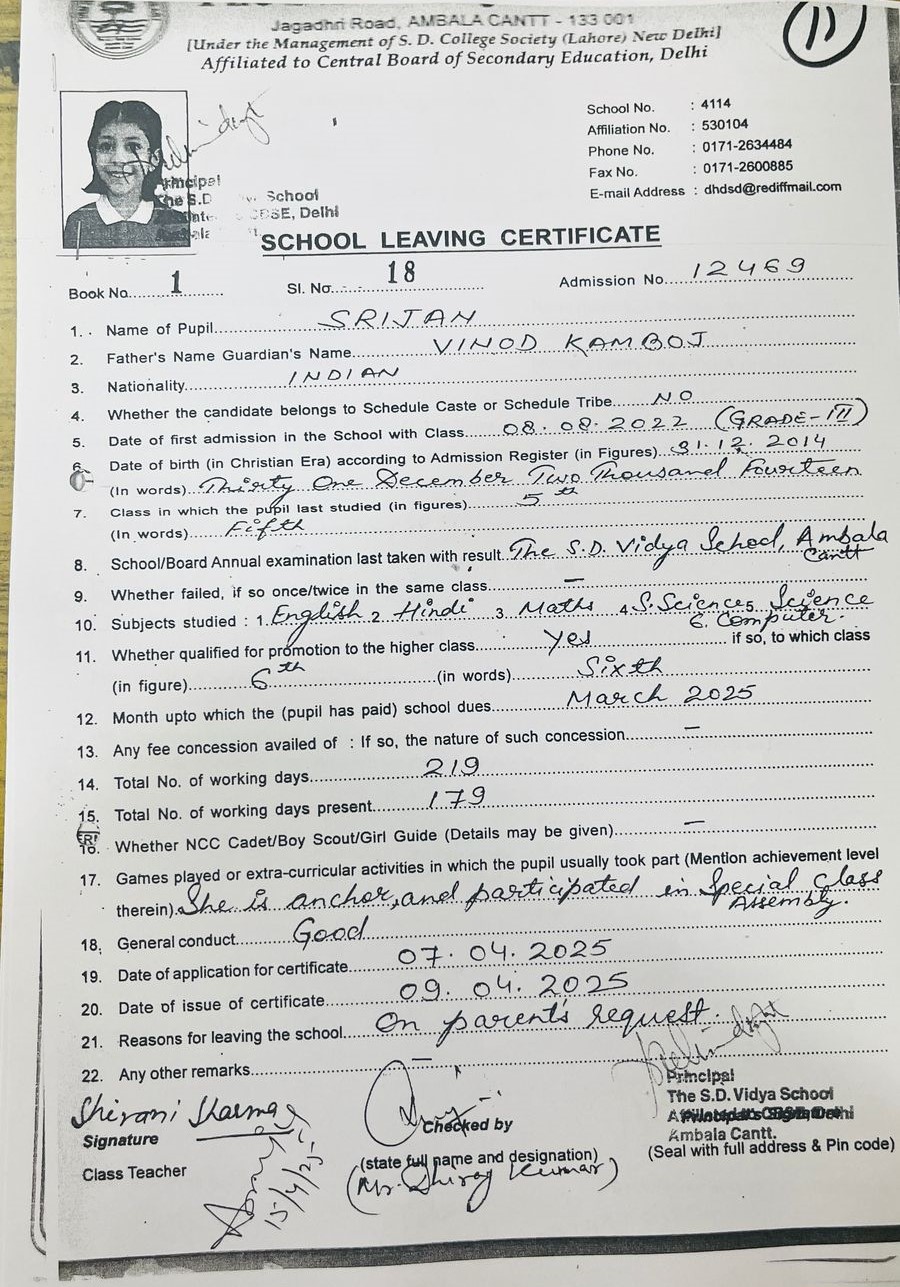 11
Jagadhri Road, AMBALA CANTT - 133 001
[Under the Management of S. D. College Society (Lahore) New Delhi]
Affiliated to Central Board of Secondary Education, Delhi
School No. : 4114
Affiliation No. : 530104
Phone No. : 0171-2634484
Fax No. : 0171-2600885
E-mail Address : dhdsd@rediffmail.com
Principal
The S.D. School
CBSE, Delhi
SCHOOL LEAVING CERTIFICATE
Book No. 1 Sl. No. 18 Admission No. 12469
1. Name of Pupil SRIJAN
2. Father's Name Guardian's Name VINOD KAMBOJ
3. Nationality INDIAN
4. Whether the candidate belongs to Schedule Caste or Schedule Tribe NO
5. Date of first admission in the School with Class 08.08.2022 (GRADE-III)
6. Date of birth (in Christian Era) according to Admission Register (in Figures) 31.12.2014
(In words) Thirty One December Two Thousand Fourteen
7. Class in which the pupil last studied (in figures) 5th
(In words) Fifth
8. School/Board Annual examination last taken with result The S.D. Vidya School, Ambala Cantt
9. Whether failed, if so once/twice in the same class —
10. Subjects studied : 1. English 2 Hindi 3 Maths 4 S.Science 5 Science
6 Computer.
11. Whether qualified for promotion to the higher class yes if so, to which class
(in figure) 6th (in words) Sixth
12. Month upto which the (pupil has paid) school dues March 2025
13. Any fee concession availed of : If so, the nature of such concession —
14. Total No. of working days 219
15. Total No. of working days present 179
16. Whether NCC Cadet/Boy Scout/Girl Guide (Details may be given) —
17. Games played or extra-curricular activities in which the pupil usually took part (Mention achievement level
therein) She is anchor, and participated in Special Class
Assembly.
18. General conduct Good
19. Date of application for certificate 07.04.2025
20. Date of issue of certificate 09.04.2025
21. Reasons for leaving the school On parent's request.
22. Any other remarks —
Shivani Sharma
Signature
Class Teacher
15/4/25
Checked by
(state full name and designation)
(Mr. Dhiraj Kumar)
Principal
The S.D. Vidya School
Ambala Cantt.
(Seal with full address & Pin code)